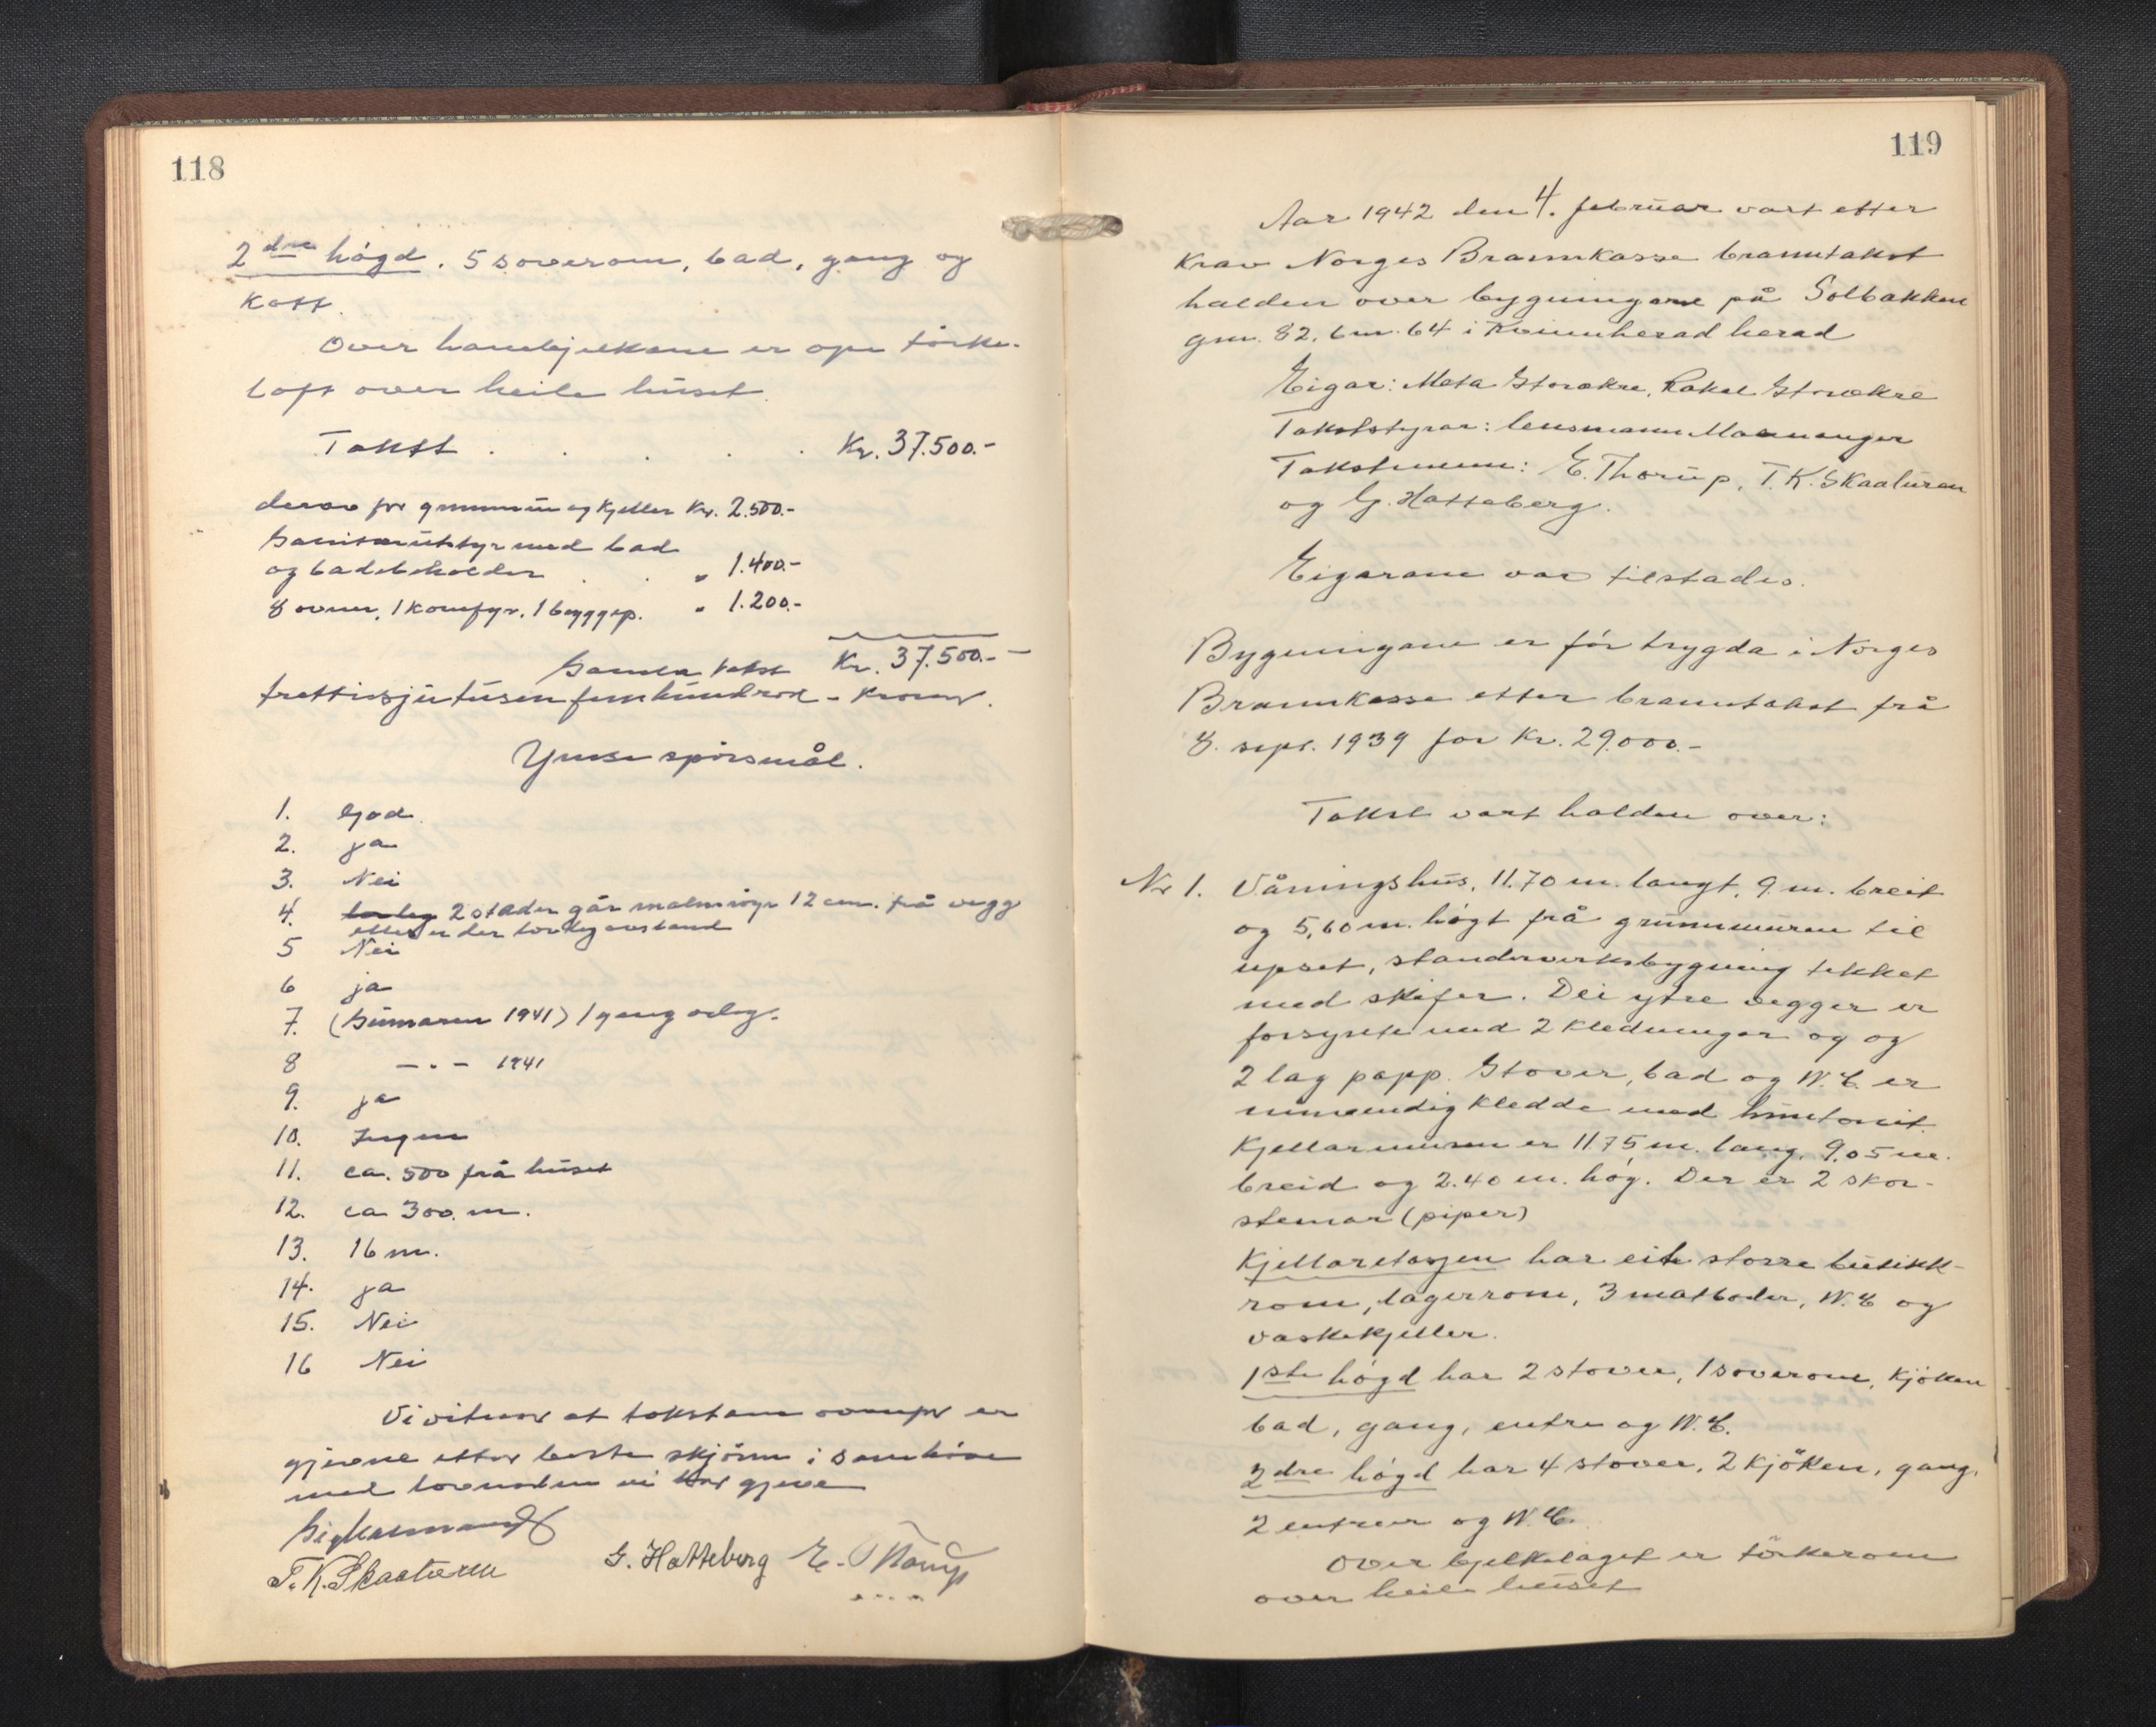 118
2dre högd. 5 soverom, bad, gang og
kott.
Over hanebjelkane er ope törke-
loft over heile huset.
Takst . . . . . Kr. 37.500.-
derav for grunnmur og kjeller Kr. 2.500.-
Sanitærutstyr med bad
og badebeholder . . " 1.400.-
8 ovner, 1 komfyr, 1 bryggep. " 1.200.-
Samla takst Kr. 37.500.-
trettisjutusenfemhundrad - kroner.
Ymse spörsmål.
1. God.
2. ja
3. Nei
4. 2 stader går malmröyr 12 cm. frå vegg
elles er der lovleg avstand
5 Nei
6 ja
7. (Sumaren 1941) 1 gang årleg.
8 -.- 1941
9. ja
10. Ingen
11. ca. 500 frå huset
12. ca 300 m.
13. 16 m.
14. ja
15. Nei
16 Nei
Vi vitnar at takstane ovanfor er
gjevne etter beste skjönn i samhöve
med lovnaden vi har gjeve
T. K. Skaaluren G. Hatteberg E. Thorup
119
Aar 1942 den 4. februar vart etter
krav Norges Brannkasse branntakst
halden over bygningane på Solbakken
gnr. 82, bnr. 64 i Kvinnherad herad
Eigar: Meta Storækre, Rakel Storækre
Takststyrar: lensmann Maununger
Takstmenn: E. Thorup, T. K. Skaaluren
og G. Hatteberg.
Eigarane var tilstades.
Bygningane er för trygda i Norges
Brannkasse etter branntakst frå
8. sept. 1939 for Kr. 29.000.-
Takst vart halden over:
Nr 1. Våningshus, 11.70 m. langt, 9 m. breit
og 5,60 m. högt frå grunnmuren til
upset, standerverksbygning tekket
med skifer. Dei ytre vegger er
forsynte med 2 kledningar og og
2 lag papp. Stover, bad og W.C. er
innvendig kledde med huntonit.
Kjellarmuren er 11.75 m. lang, 9.05 m.
breid og 2.40 m. hög. Der er 2 skor-
steinar (piper)
Kjellaretasjen har eit större butikk-
rom, lagerrom, 3 matboder, W.C og
vaskekjeller.
1ste högd har 2 stover, 1 soverom, kjöken
bad, gang, entre og W.C.
2dre högd har 4 stover, 2 kjöken, gang,
2 entreer og W.C.
Over bjelkelaget er törkerom
over heile huset